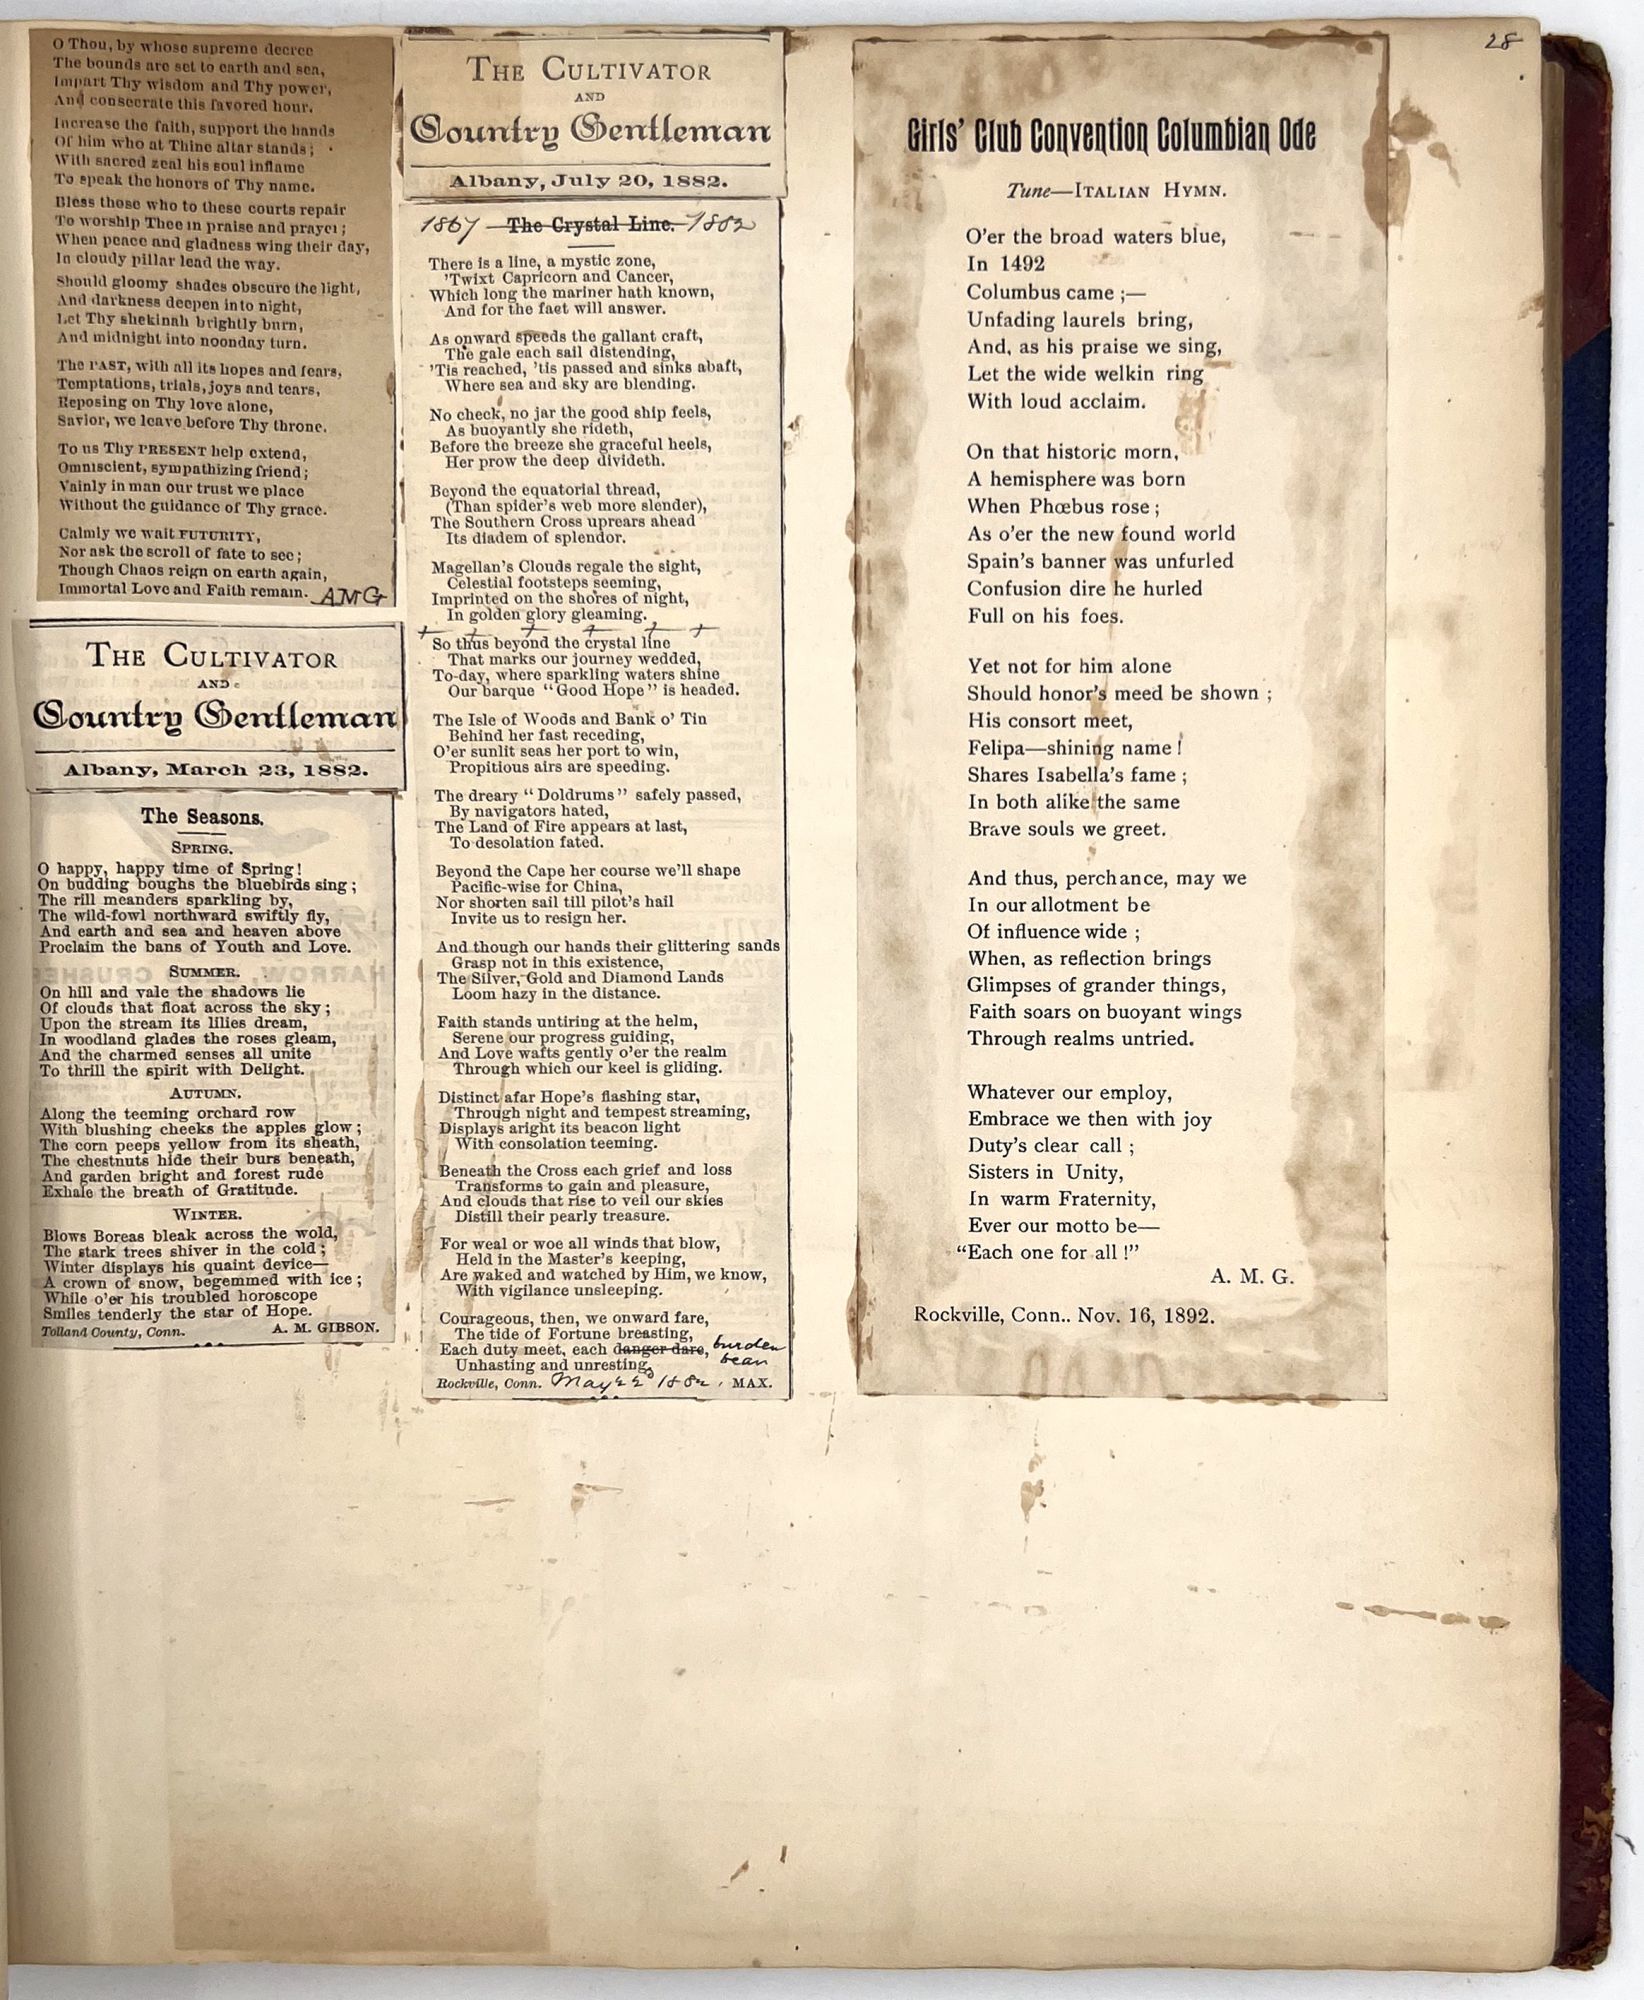 28
O Thou, by whose supreme decree
The bounds are set to earth and sea,
Impart Thy wisdom and Thy power,
And consecrate this favored hour.
Increase the faith, support the hands
Of him who at Thine altar stands;
With sacred zeal his soul inflame
To speak the honors of Thy name.
Bless those who to these courts repair
To worship Thee in praise and prayer;
When peace and gladness wing their day,
In cloudy pillar lead the way.
Should gloomy shades obscure the light,
And darkness deepen into night,
Let Thy shekinah brightly burn,
And midnight into noonday turn.
The PAST, with all its hopes and fears,
Temptations, trials, joys and tears,
Reposing on Thy love alone,
Savior, we leave before Thy throne.
To us Thy PRESENT help extend,
Omniscient, sympathizing friend;
Vainly in man our trust we place
Without the guidance of Thy grace.
Calmly we wait FUTURITY,
Nor ask the scroll of fate to see;
Though Chaos reign on earth again,
Immortal Love and Faith remain. AMG
THE CULTIVATOR
AND
Country Gentleman
Albany, March 23, 1882.
The Seasons.
SPRING.
O happy, happy time of Spring!
On budding boughs the bluebirds sing;
The rill meanders sparkling by,
The wild-fowl northward swiftly fly,
And earth and sea and heaven above
Proclaim the bans of Youth and Love.
SUMMER.
On hill and vale the shadows lie
Of clouds that float across the sky;
Upon the stream its lilies dream,
In woodland glades the roses gleam,
And the charmed senses all unite
To thrill the spirit with Delight.
AUTUMN.
Along the teeming orchard row
With blushing cheeks the apples glow;
The corn peeps yellow from its sheath,
The chestnuts hide their burs beneath,
And garden bright and forest rude
Exhale the breath of Gratitude.
WINTER.
Blows Boreas bleak across the wold,
The stark trees shiver in the cold;
Winter displays his quaint device—
A crown of snow, begemmed with ice;
While o'er his troubled horoscope
Smiles tenderly the star of Hope.
Tolland County, Conn. A. M. GIBSON.
THE CULTIVATOR
AND
Country Gentleman
Albany, July 20, 1882.
1867 The Crystal Line. 1882
There is a line, a mystic zone,
'Twixt Capricorn and Cancer,
Which long the mariner hath known,
And for the fact will answer.
As onward speeds the gallant craft,
The gale each sail distending,
'Tis reached, 'tis passed and sinks abaft,
Where sea and sky are blending.
No check, no jar the good ship feels,
As buoyantly she rideth,
Before the breeze she graceful heels,
Her prow the deep divideth.
Beyond the equatorial thread,
(Than spider's web more slender),
The Southern Cross uprears ahead
Its diadem of splendor.
Magellan's Clouds regale the sight,
Celestial footsteps seeming,
Imprinted on the shores of night,
In golden glory gleaming.
So thus beyond the crystal line
That marks our journey wedded,
To-day, where sparkling waters shine
Our barque "Good Hope" is headed.
The Isle of Woods and Bank o' Tin
Behind her fast receding,
O'er sunlit seas her port to win,
Propitious airs are speeding.
The dreary "Doldrums" safely passed,
By navigators hated,
The Land of Fire appears at last,
To desolation fated.
Beyond the Cape her course we'll shape
Pacific-wise for China,
Nor shorten sail till pilot's hail
Invite us to resign her.
And though our hands their glittering sands
Grasp not in this existence,
The Silver, Gold and Diamond Lands
Loom hazy in the distance.
Faith stands untiring at the helm,
Serene our progress guiding,
And Love wafts gently o'er the realm
Through which our keel is gliding.
Distinct afar Hope's flashing star,
Through night and tempest streaming,
Displays aright its beacon light
With consolation teeming.
Beneath the Cross each grief and loss
Transforms to gain and pleasure,
And clouds that rise to veil our skies
Distill their pearly treasure.
For weal or woe all winds that blow,
Held in the Master's keeping,
Are waked and watched by Him, we know,
With vigilance unsleeping.
Courageous, then, we onward fare,
The tide of Fortune breasting,
Each duty meet, each danger dare, burden
bear
Unhasting and unresting.
Rockville, Conn. May 22d 1882. MAX.
Girls' Club Convention Columbian Ode
Tune—ITALIAN HYMN.
O'er the broad waters blue,
In 1492
Columbus came;—
Unfading laurels bring,
And, as his praise we sing,
Let the wide welkin ring
With loud acclaim.
On that historic morn,
A hemisphere was born
When Phœbus rose;
As o'er the new found world
Spain's banner was unfurled
Confusion dire he hurled
Full on his foes.
Yet not for him alone
Should honor's meed be shown;
His consort meet,
Felipa—shining name!
Shares Isabella's fame;
In both alike the same
Brave souls we greet.
And thus, perchance, may we
In our allotment be
Of influence wide;
When, as reflection brings
Glimpses of grander things,
Faith soars on buoyant wings
Through realms untried.
Whatever our employ,
Embrace we then with joy
Duty's clear call;
Sisters in Unity,
In warm Fraternity,
Ever our motto be—
"Each one for all!"
A. M. G.
Rockville, Conn.. Nov. 16, 1892.